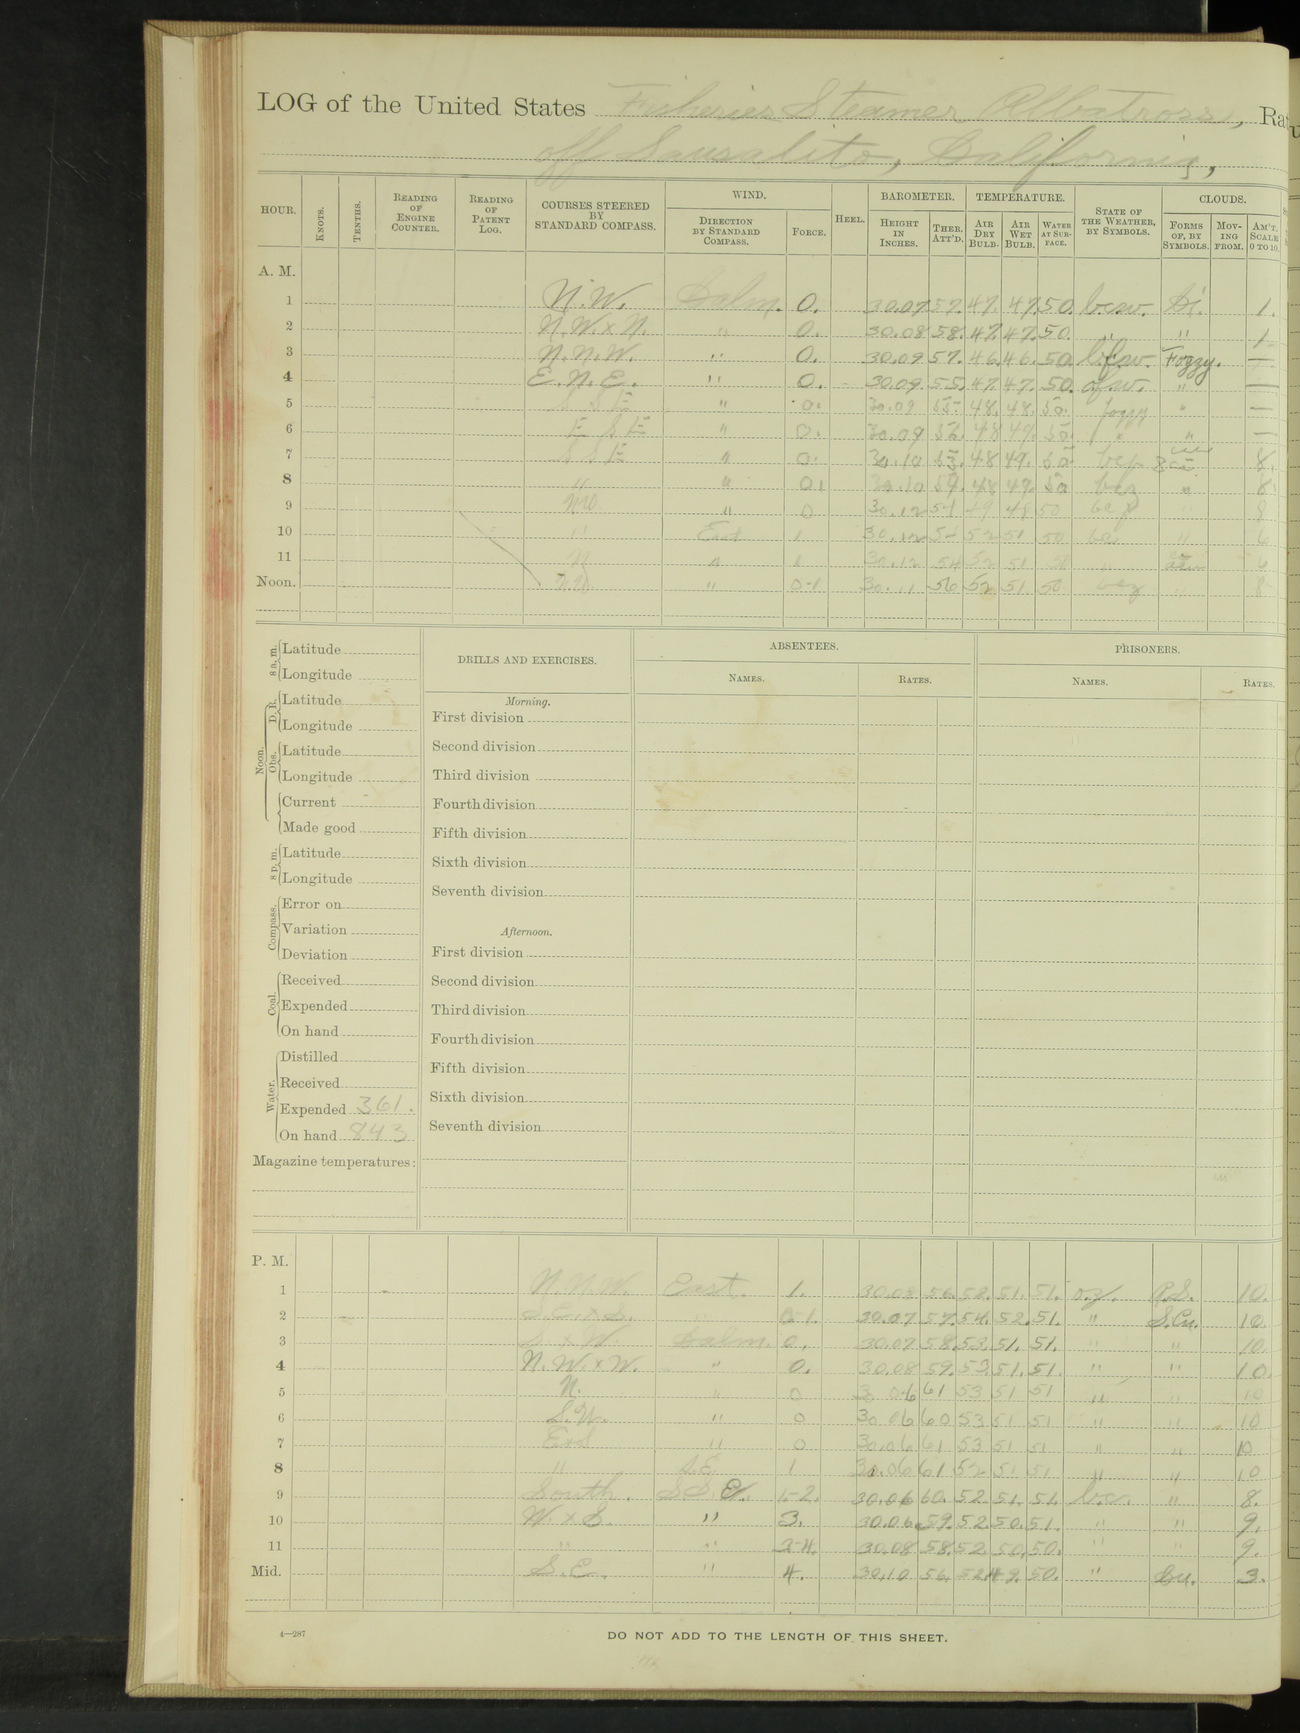 LOG of the United States Fisheries Steamer Albatross, Ra
off Sausalito, California,
HOUR. KNOTS. TENTHS. READING OF ENGINE COUNTER. READING OF PATENT LOG. COURSES STEERED BY STANDARD COMPASS. WIND. DIRECTION BY STANDARD COMPASS. FORCE. HEEL. BAROMETER. HEIGHT IN INCHES. THER. ATT'D. TEMPERATURE. AIR DRY BULB. AIR WET BULB. WATER AT SURFACE. STATE OF THE WEATHER, BY SYMBOLS. CLOUDS. FORMS OF, BY SYMBOLS. MOVING FROM. AM'T. SCALE 0 TO 10.
A. M.
1 N.W. Calm. 0. 30.07 57. 47. 47. 50. 1.
2 N.W. x N. " 0. 30.08 58. 47. 47. 50. " " 1.
3 N.N.W. " 0. 30.09 57. 46. 46. 50. Foggy. —
4 E.N.E. " 0. 30.09 55. 47. 47. 50. ofw. " —
5 S S E " 0. 30.09 55 48. 48. 50. foggy " —
6 E S E " 0. 30.09 48 47. 50. " " —
7 S S E " 0. 30.10 53. 48 47. 50 8.
8 " " 30.10 48 47. 50 " 8
9 NW " 0 30.12 54 49 48 50 " 8
10 " East 1 30.12 54 52 51 50 " 6
11 N " 1 30.12 54 52 51 50 " 6
Noon. " 0-1 30.11 56 52 51 50 " 8
8 a. m. Latitude
Longitude
Noon. D. R. Latitude
Longitude
Obs. Latitude
Longitude
Current
Made good
8 p. m. Latitude
Longitude
Compass. Error on
Variation
Deviation
Coal. Received
Expended
On hand
Water. Distilled
Received
Expended 361.
On hand 843
Magazine temperatures:
DRILLS AND EXERCISES.
Morning.
First division
Second division
Third division
Fourth division
Fifth division
Sixth division
Seventh division
Afternoon.
First division
Second division
Third division
Fourth division
Fifth division
Sixth division
Seventh division
ABSENTEES.
NAMES. RATES.
PRISONERS.
NAMES. RATES.
P. M.
1 N.N.W. East. 1. 30.08 56. 52. 51. 51. oz. 10.
2 S.E. x S. " 0-1. 30.07 57. 54. 52. 51. " S.Cu. 10.
3 S. x W Calm. 0. 30.07 58. 53. 51. 51. " " 10.
4 N.W. x W. " 0. 30.08 59. 53. 51. 51. " " 10.
5 N. " 0 30.06 61 53 51 51 " " 10
6 S.W. " 0 30.06 60 53 51 51 " " 10
7 " 0 30.06 61 53 51 51 " " 10
8 " S.E. 1 30.06 61 52 51 51 " " 10
9 South. S S E. 1-2. 30.06 60. 52. 51. 51. b.c. " 8.
10 W. x S. " 3. 30.06 59. 52. 50. 51. " " 9.
11 " " 3-4. 30.08 58. 52. 50. 50. " " 9.
Mid. S.E. " 4. 30.10 56. 52. 49. 50. " Cu. 3.
4—287
DO NOT ADD TO THE LENGTH OF THIS SHEET.